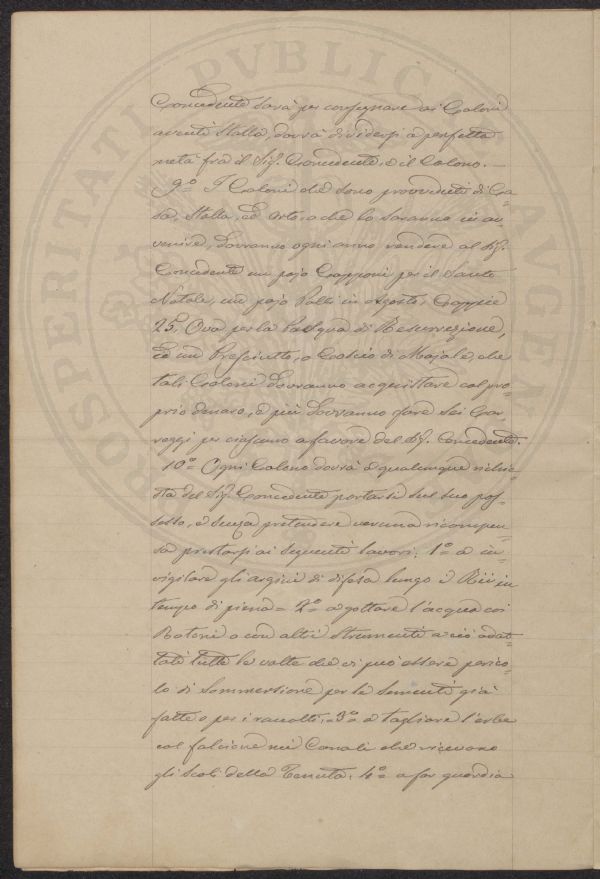 Concedente sarà per consegnare ai Coloni
aventi Stalla, dovrà dividersi a perfetta
metà frà il Sig.r Concedente, e il Colono. —
9.o I Coloni che sono provveduti di Ca-
sa, Stalla, ed Orto, o che lo saranno in av-
venire, dovranno ogni anno, rendere al Sig.r
Concedente un pajo Capponi per il Santo
Natale, un pajo Polli in Agosto, Coppie
25. Ova per la Pasqua di Resurrezione,
ed un Presciutto, o Coscio di Majale, che
tali Coloni dovranno acquistare col pro-
prio denaro, e più dovranno fare sei Car-
reggi per ciascuno a favore del Sig.r Concedente.
10.o Ogni Colono dovrà a qualunque richie-
sta del Sig.r Concedente portarsi sul suo pos-
sesso, e senza pretendere veruna ricompen-
sa prestarsi ai seguenti lavori: 1.o a in-
vigilare gli argini di difesa lungo i Rii in
tempo di piena = 2.o a gottare l'acqua coi
o con altri Strumenti a ciò adat-
tati tutte le volte che vi può essere perico-
lo di Sommersione per le Sementi già
fatte o per i raccolti, = 3.o a tagliare l'erba
col falcione nei Canali che ricevono
gli Scoli della Tenuta, 4.o a far guardia
PROSPERITATI PVBLICAE AVGEN